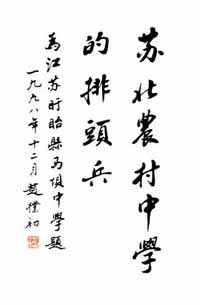 苏北農村中學
的排頭兵
為江苏盱眙縣马坝中學題
一九九八年十二月 趙樸初